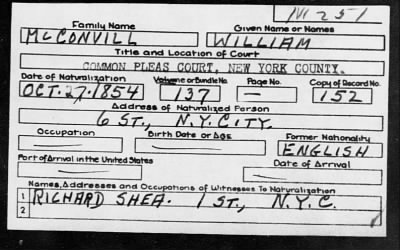 M251
Family Name Given Name or Names
McCONVILL WILLIAM
Title and Location of Court
COMMON PLEAS COURT, NEW YORK COUNTY.
Date of Naturalization Volume or Bundle No. Page No. Copy of Record No.
OCT. 27. 1854 137 — 152
Address of Naturalized Person
6 ST., N.Y. CITY.
Occupation Birth Date or Age Former Nationality
— — ENGLISH
Port of Arrival in the United States Date of Arrival
— —
Names, Addresses and Occupations of Witnesses To Naturalization
1 RICHARD SHEA. 1 ST., N.Y.C.
2